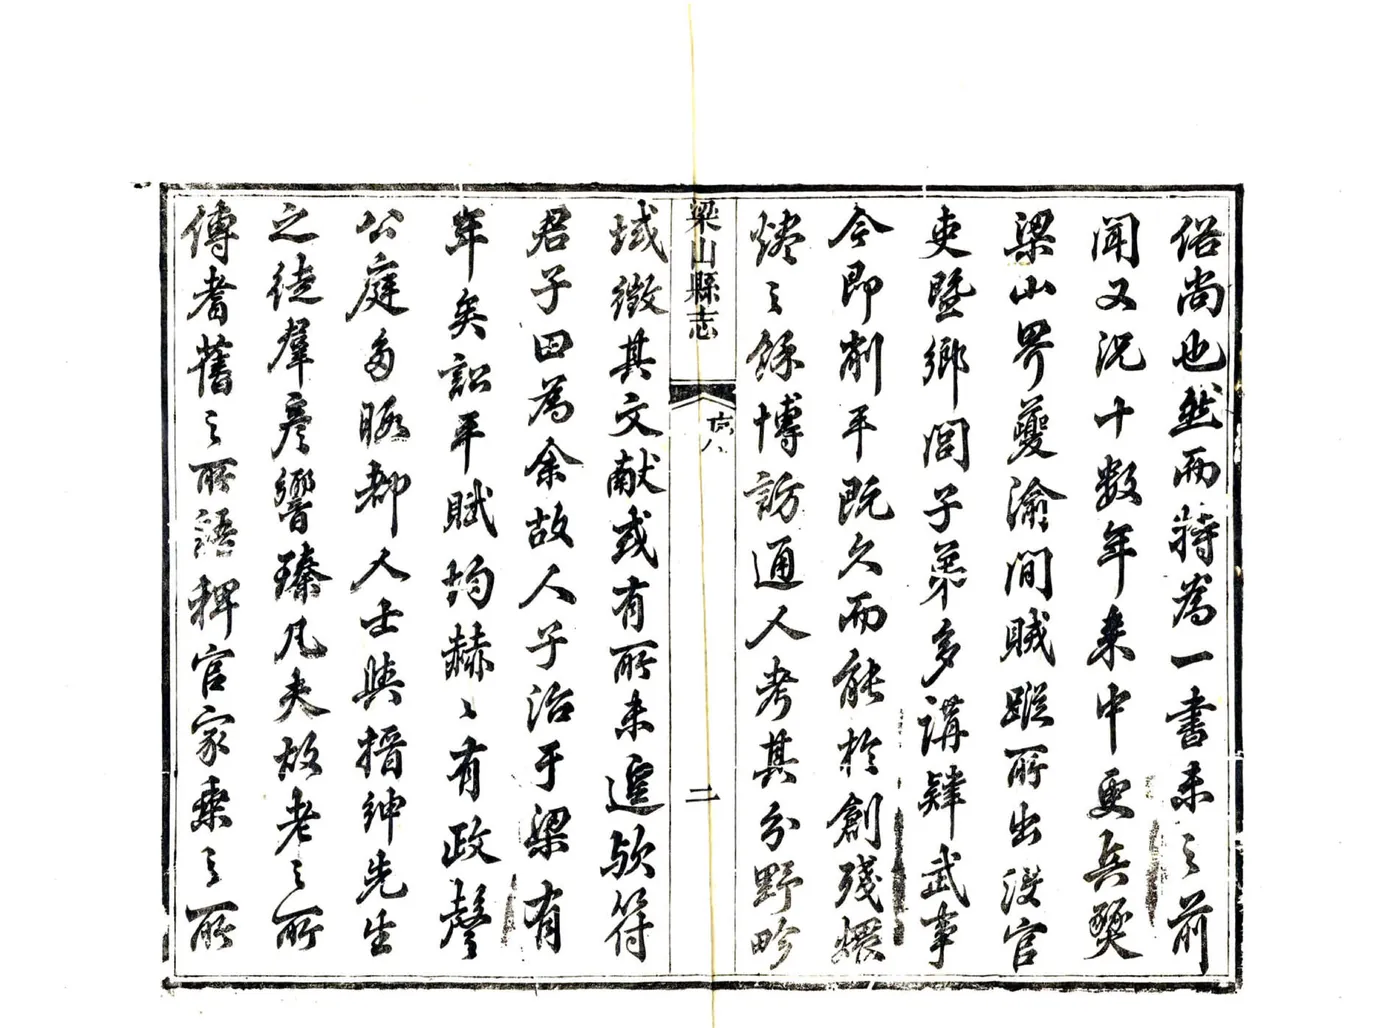 俗尚也然而特為一書未之前
聞又況十數年來中更兵燹
梁山界夔渝間賊蹤所出沒官
吏暨鄉閭子弟多講肄武事
今即削平既久而能於創殘煨
燼之餘博訪通人考其分野畛
梁山縣志
序八
二
域徵其文獻或有所未遑歟符
君子田為余故人子治于梁有
年矣訟平賦均赫〻有政聲
公庭多暇都人士與搢紳先生
之徒羣彥響臻凡夫故老之所
傳耆舊之所語稗官家乘之所